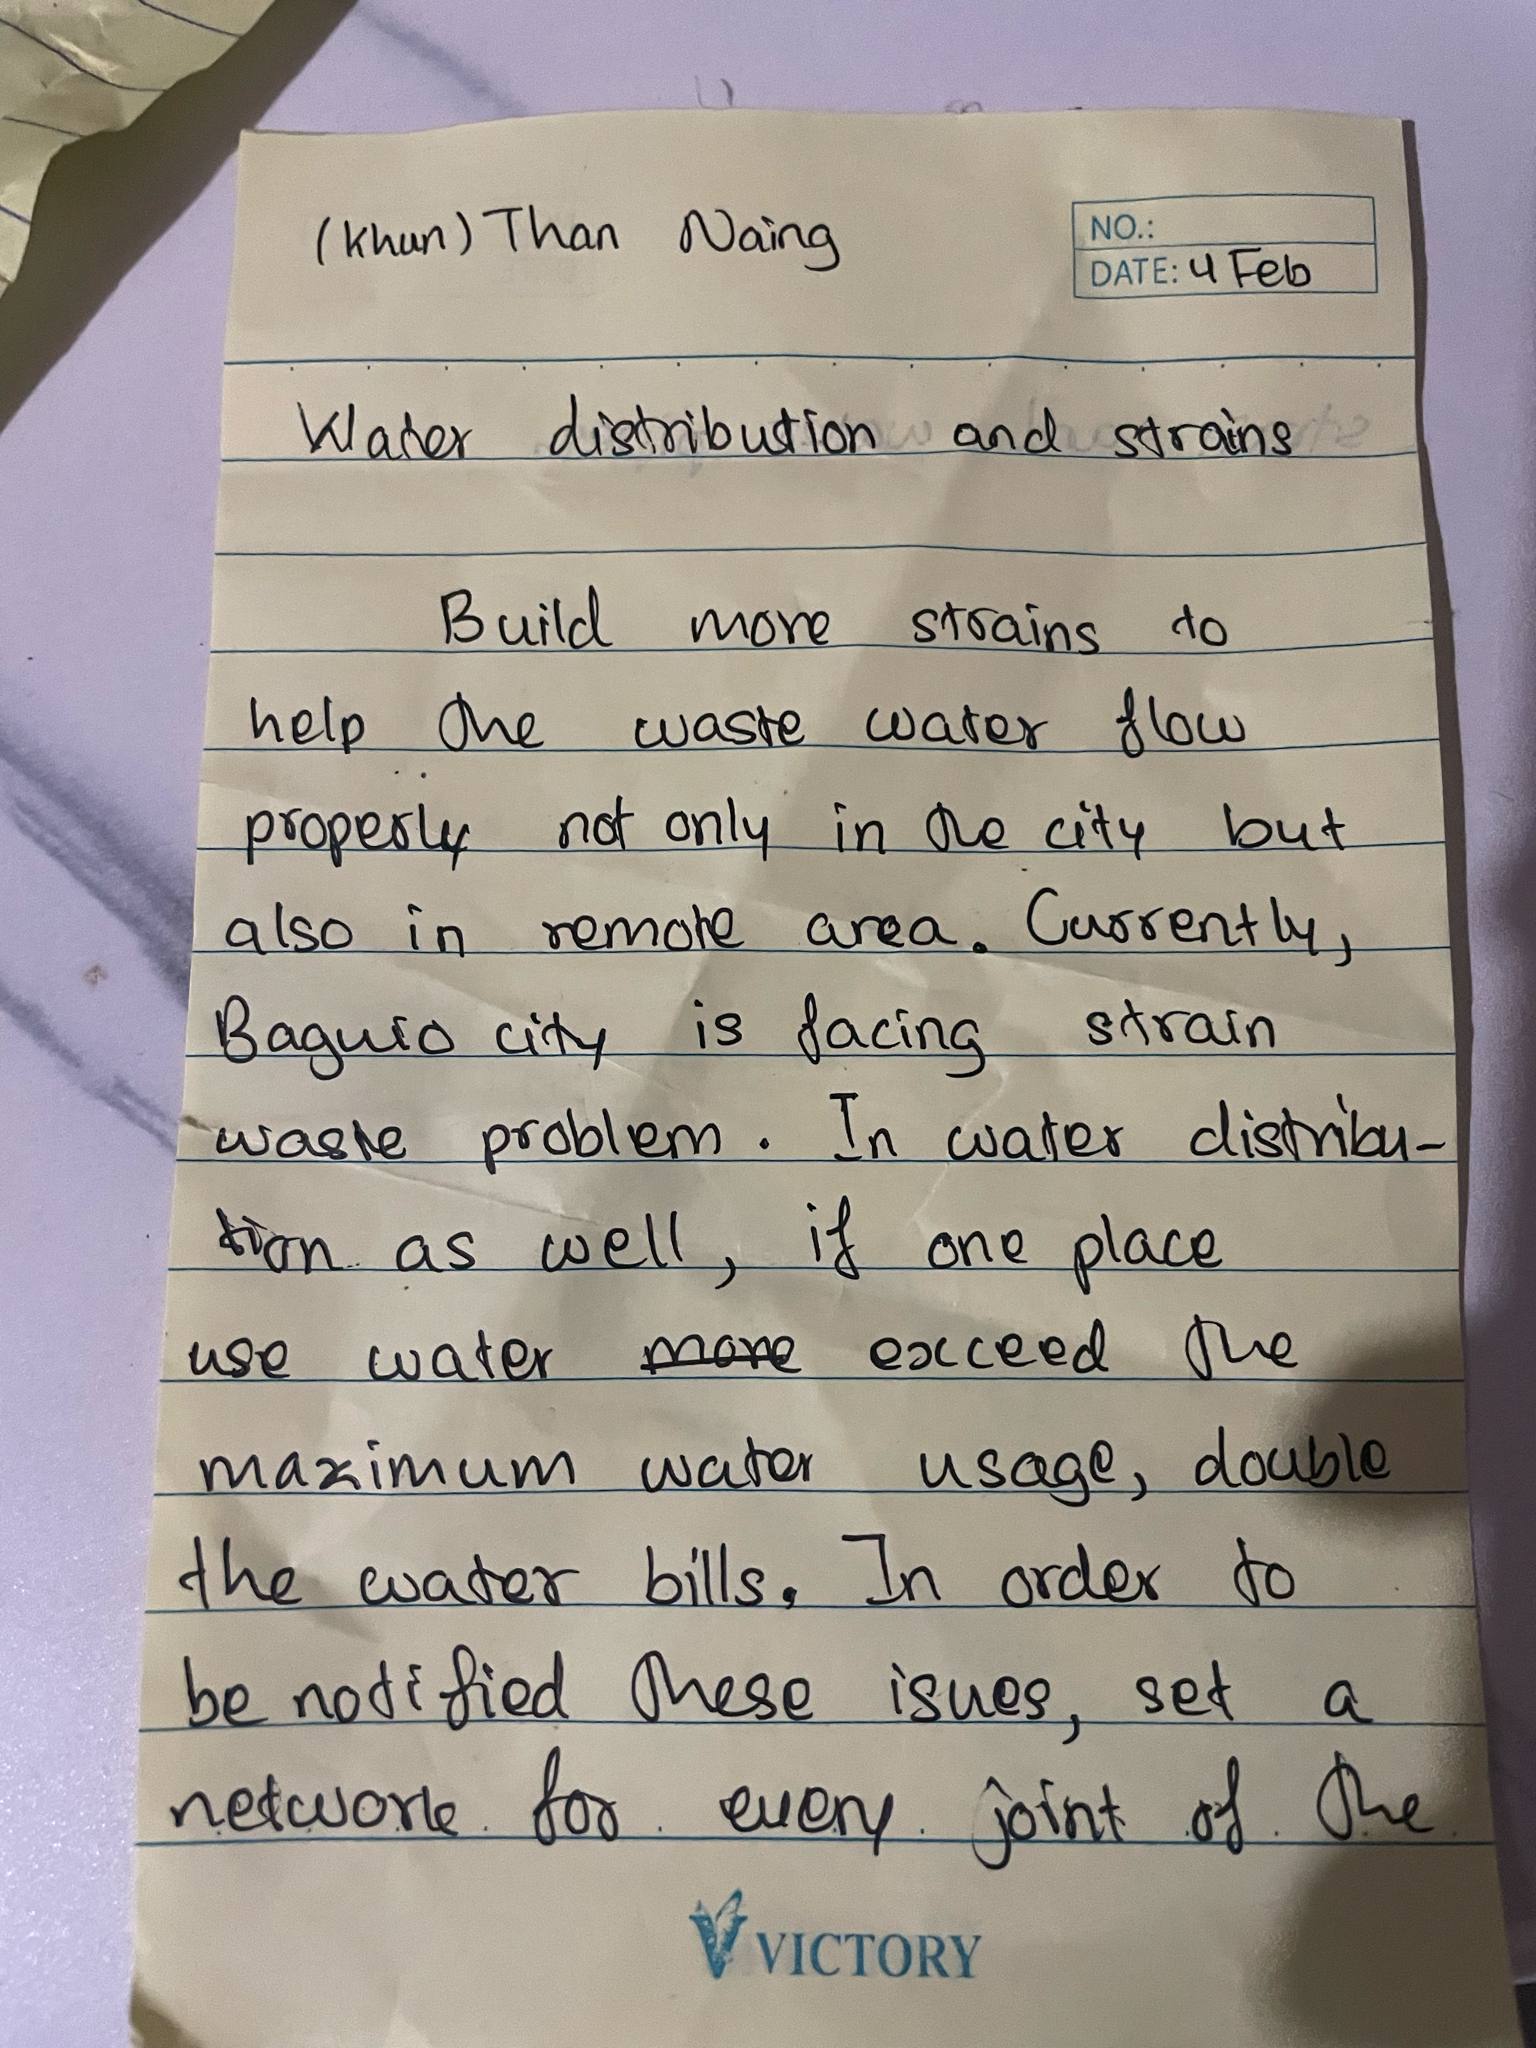 (Khun) Than Naing
NO.:
DATE: 4 Feb
Water distribution and strains
Build more strains to
help the waste water flow
properly not only in the city but
also in remote area. Currently,
Baguio city is facing strain
waste problem. In water distribu-
tion as well, if one place
use water more exceed the
maximum water usage, double
the water bills. In order to
be notified these isues, set a
network for every joint of the
VICTORY